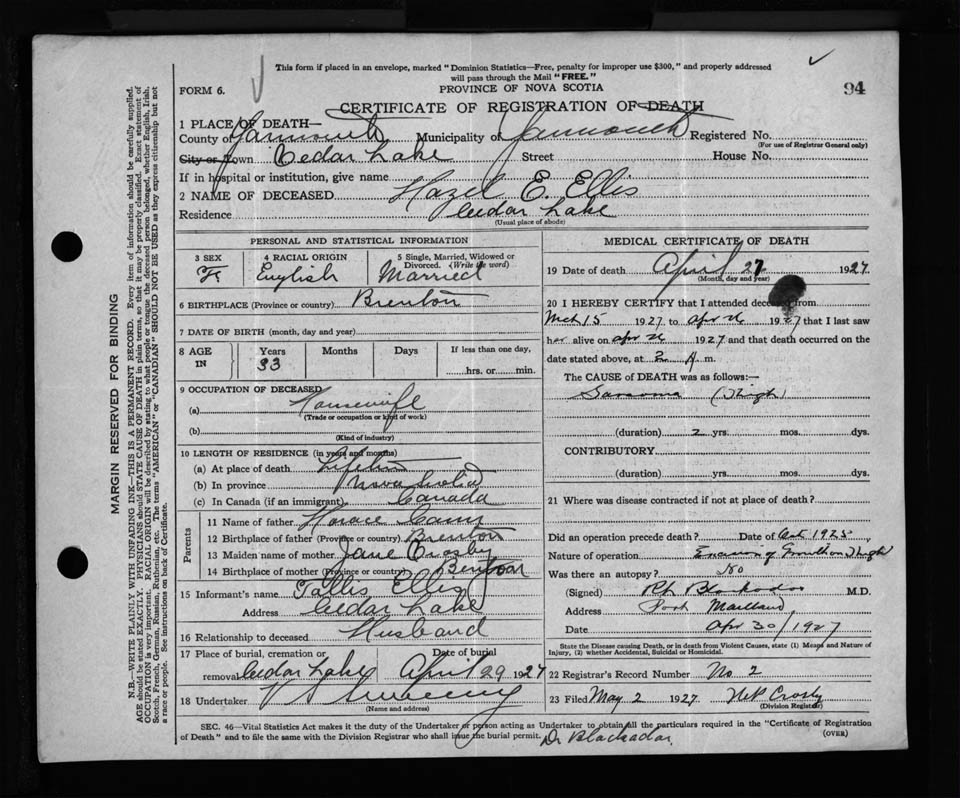 This form if placed in an envelope, marked "Dominion Statistics—Free, penalty for improper use $300," and properly addressed
will pass through the Mail "FREE."
FORM 6.
PROVINCE OF NOVA SCOTIA
94
CERTIFICATE OF REGISTRATION OF DEATH
1 PLACE OF DEATH—
County of Yarmouth Municipality of Yarmouth Registered No.
(For use of Registrar General only)
City or Town Cedar Lake Street House No.
If in hospital or institution, give name
2 NAME OF DECEASED Hazel E. Ellis
Residence Cedar Lake
(Usual place of abode)
PERSONAL AND STATISTICAL INFORMATION
3 SEX F.
4 RACIAL ORIGIN English
5 Single, Married, Widowed or Divorced. (Write the word) Married
6 BIRTHPLACE (Province or country) Brenton
7 DATE OF BIRTH (month, day and year)
8 AGE IN Years Months Days If less than one day,
33 hrs. or min.
9 OCCUPATION OF DECEASED
(a) Housewife
(Trade or occupation or kind of work)
(b)
(Kind of industry)
10 LENGTH OF RESIDENCE (in years and months)
(a) At place of death
(b) In province Nova Scotia
(c) In Canada (if an immigrant) Canada
Parents
11 Name of father Horace
12 Birthplace of father (Province or country) Brenton
13 Maiden name of mother Jane Crosby
14 Birthplace of mother (Province or country)
15 Informant's name Ellis
Address Cedar Lake
16 Relationship to deceased Husband
17 Place of burial, cremation or removal Cedar Lake
Date of burial April 29 1927
18 Undertaker
(Name and address)
MEDICAL CERTIFICATE OF DEATH
19 Date of death April 27 1927
(Month, day and year)
20 I HEREBY CERTIFY that I attended deceased from
Mch 15 1927 to Apr 26 1927 that I last saw
her alive on Apr 26 1927 and that death occurred on the
date stated above, at 2 A m.
The CAUSE OF DEATH was as follows:—
Sarcoma (Thigh)
(duration) 2 yrs. mos. dys.
CONTRIBUTORY
(duration) yrs. mos. dys.
21 Where was disease contracted if not at place of death?
Did an operation precede death? Date of Oct 1925
Nature of operation Excision of Growth on Thigh
Was there an autopsy? No
(Signed) M.D.
Address Port Maitland
Date Apr 30/1927
State the Disease causing Death, or in death from Violent Causes, state (1) Means and Nature of
Injury, (2) whether Accidental, Suicidal or Homicidal.
22 Registrar's Record Number No. 2
23 Filed May 2 1927 Crosby
(Division Registrar)
SEC. 46—Vital Statistics Act makes it the duty of the Undertaker or person acting as Undertaker to obtain all the particulars required in the "Certificate of Registration
of Death" and to file the same with the Division Registrar who shall issue the burial permit. Dr Blackadar
(OVER)
MARGIN RESERVED FOR BINDING
N.B.—WRITE PLAINLY WITH UNFADING INK—THIS IS A PERMANENT RECORD. Every item of information should be carefully supplied.
AGE should be stated EXACTLY. PHYSICIANS should STATE CAUSE OF DEATH in plain terms, so that it may be properly classified. Exact statement of
OCCUPATION is very important. RACIAL ORIGIN will be described by stating to what people or tongue the deceased person belonged, whether English, Irish,
Scotch, French, German, Russian, Ruthenian, etc. The terms "AMERICAN" or "CANADIAN" SHOULD NOT BE USED as they express citizenship but not
a race or people. See instructions on back of Certificate.